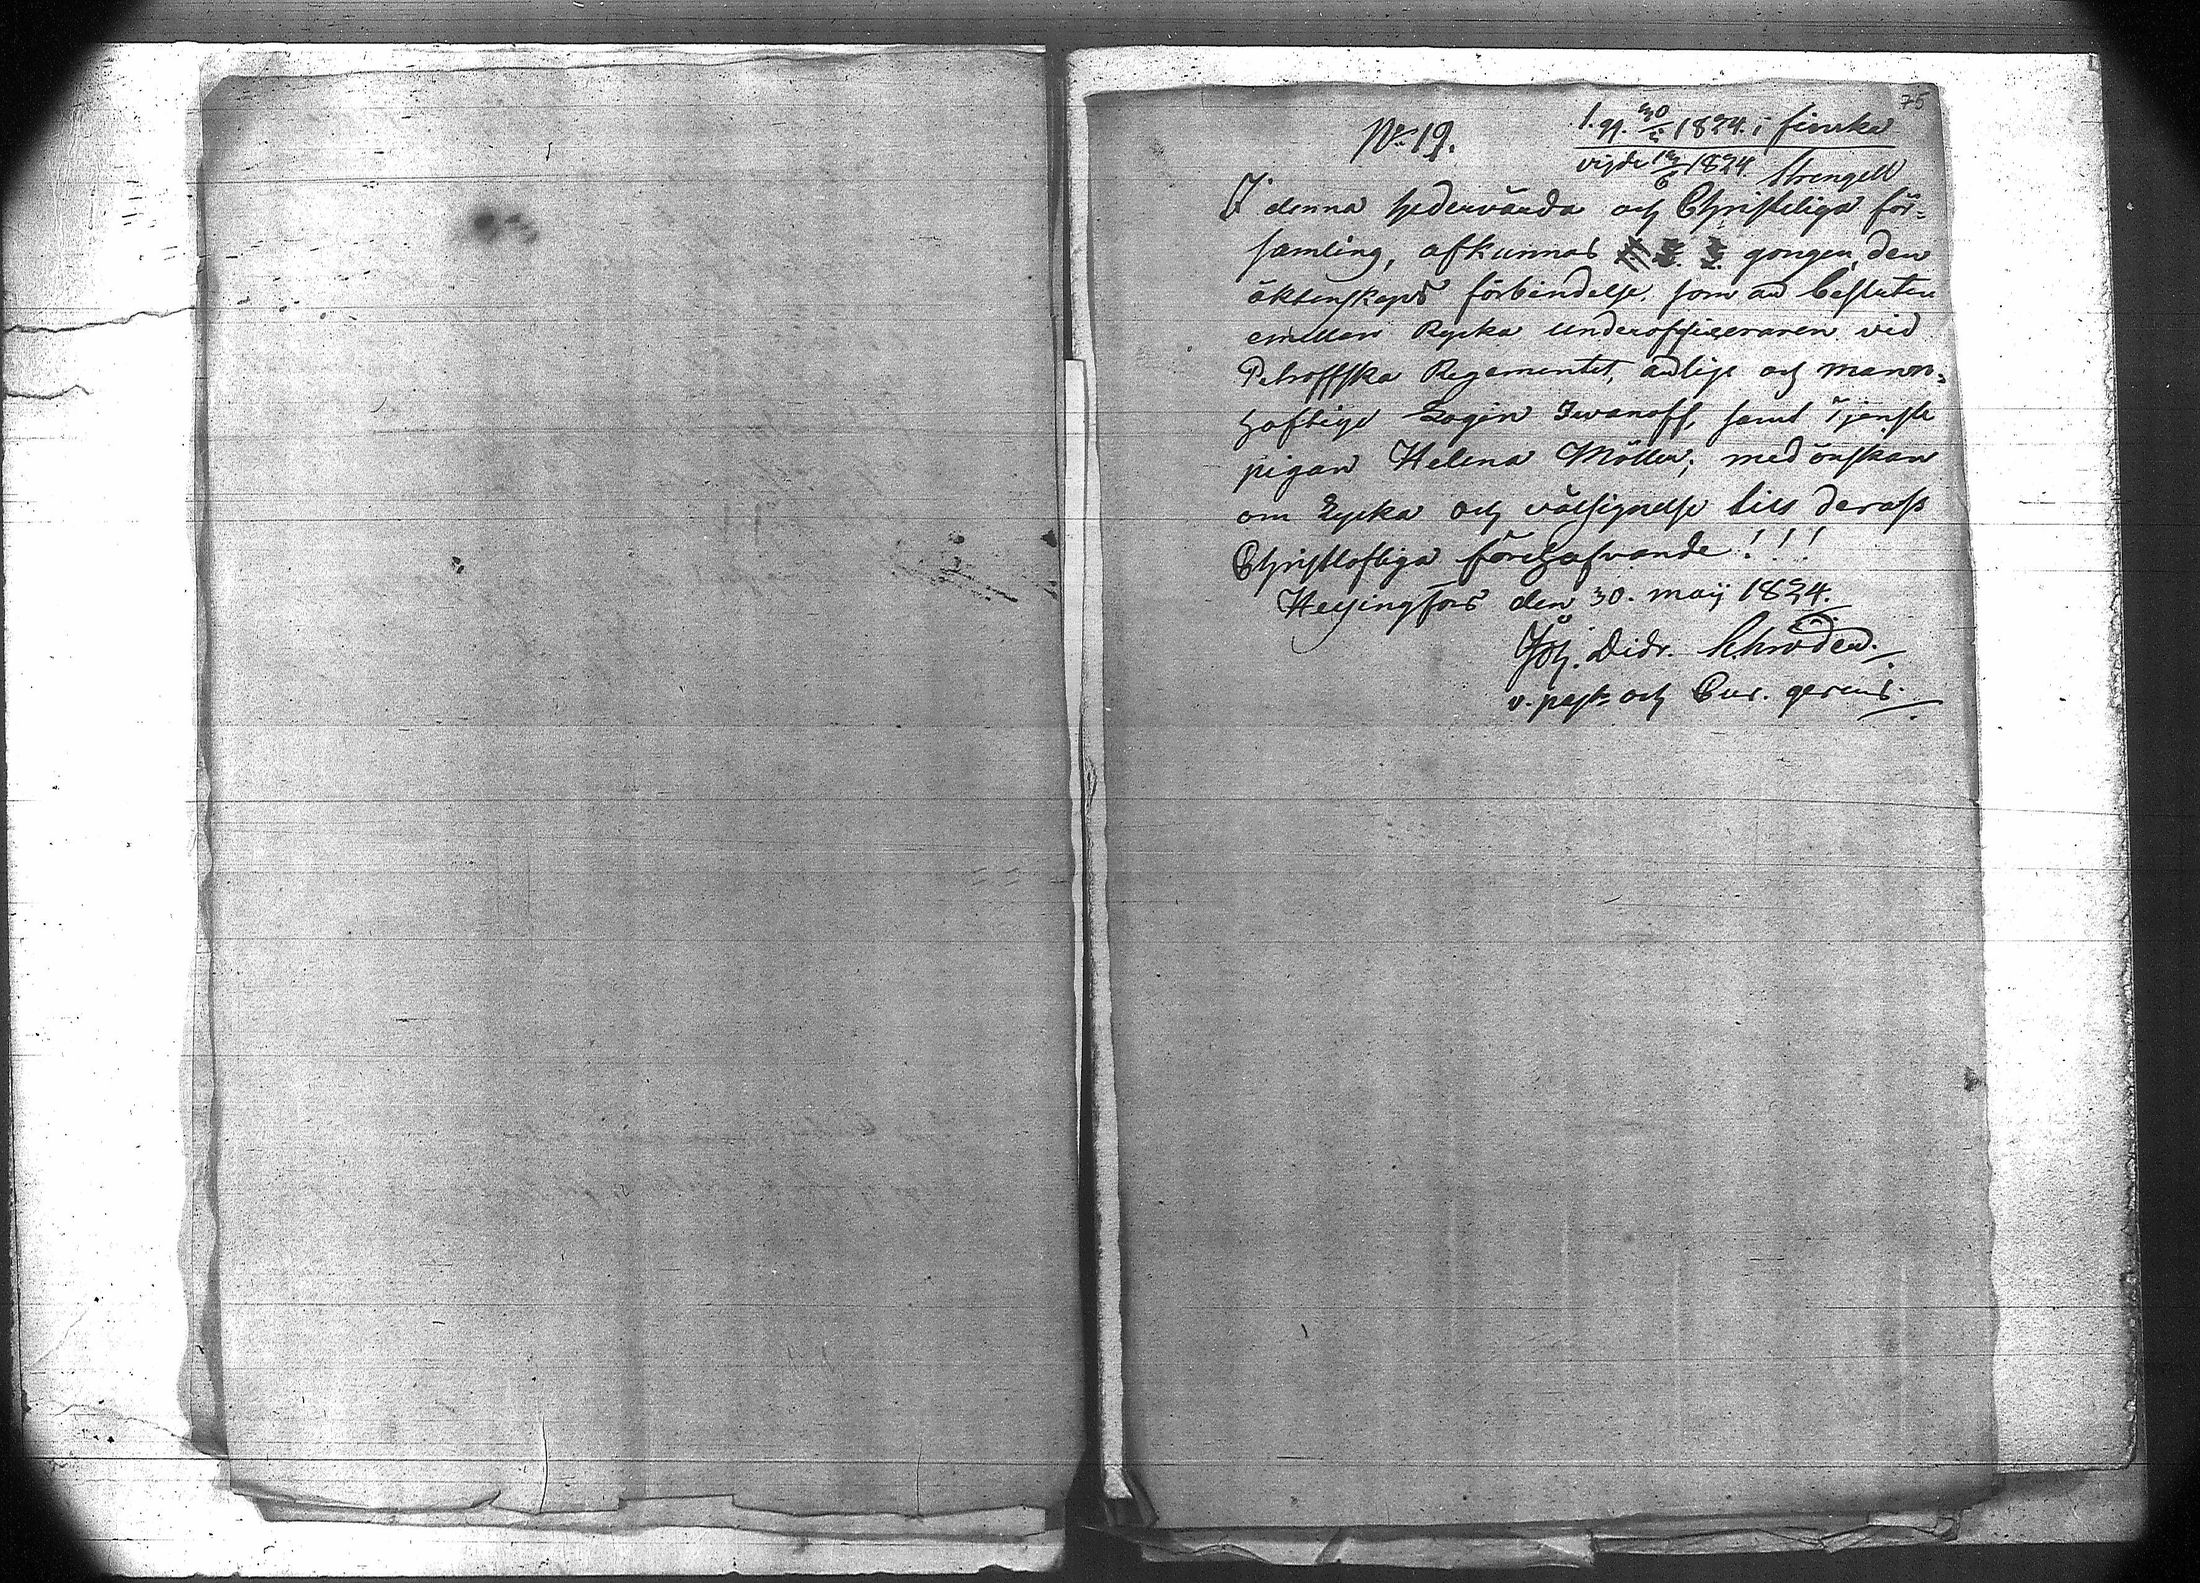 75
No 19.
1. gg. 30/5 1824. i finska
vigde 13/6 1824. Strengell
I denna hedervärda och Christeliga för-
samling, afkunnas gongen, den
äktenskaps förbindelse, som är besluten
emellan Ryska underofficeraren vid
Petroffska Regementet, ädlige och mann-
haftige Login Iwanoff, samt Tjenste
pigan Helena Möller; med önskan
om Lycka och välsignelse till derass
Christlofliga förehafvande!!!
Helsingfors den 30. maij 1824.
Joh. Didr. Schröder.
v. past: och Cur. gerens.